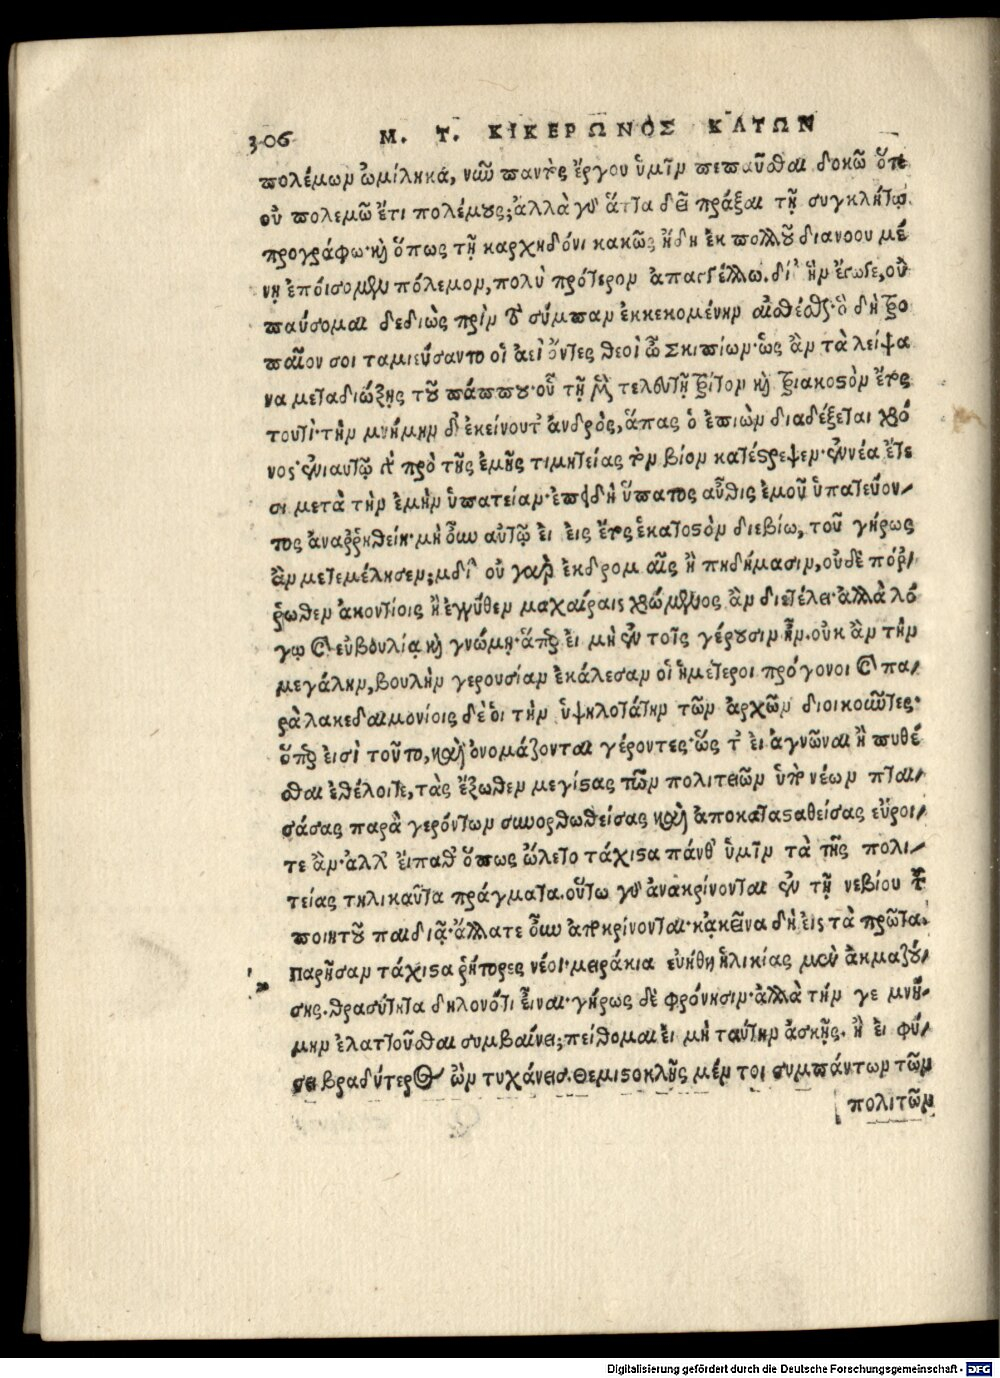 306 Μ. Τ. ΚΙΚΕΡΩΝΟΣ ΚΑΤΩΝ
πολέμων ὡμίληκά, νῦν παντὸς ἔργου ὑμῖν πεπαῦσθαι δοκῶ ὅτε
οὐ πολεμῶ ἔτι πολέμους; ἀλλὰ γοῦ ἅττα δεῖ πρᾶξαι τῇ συγκλήτῳ
προγράφω· καὶ ὅπως τῇ καρχηδόνι κακῶς ἤδη ἐκ πολλοῦ διανοουμέ
νῃ ἐποίσομεν πόλεμον, πολὺ πρότερον ἀπαγγέλλω. δι' ἣν ἔγωγε, οὐ
παύσομαι δεδιὼς πρὶν οὗ σύμπαν ἐκκεκομένην αἰσθέσθαι· ὃ δὴ τρο
παῖον σοι ταμιεύσαντο οἱ ἀεὶ ὄντες θεοὶ ὦ Σκιπίων· ὡς ἂν τὰ λείψα
να μεταδιώξῃς τοῦ πάππου· οὗ τῇ μὲν τελευτῇ τρίτον καὶ τριακοστὸν ἔτος
τουτὶ· τὴν μνήμην δ' ἐκείνου τ' ἀνδρὸς, ἅπας ὁ ἐπιὼν διαδέξεται χρό
νος· ἐνιαυτῷ πρὸ τῆς ἐμῆς τιμητείας τὸν βίον κατέστρεψεν· ἐννέα ἔτε
σι μετὰ τὴν ἐμὴν ὑπατείαν· ἐπειδὴ ὕπατος αὖθις ἐμοῦ ὑπατεύον-
τος ἀναῤῥηθείη· μὴ οὖν αὐτῷ εἰ εἰς ἔτος ἑκατοστὸν διεβίω, τοῦ γήρως
ἂν μετεμέλησεν; οὐ γὰρ ἐκδρομαῖς ἢ πηδήμασιν, οὐδὲ πόῤ-
ῥωθεν ἀκοντίοις ἢ ἐγγύθεν μαχαίραις χρώμενος ἂν διετέλει· ἀλλὰ λό
γῳ καὶ εὐβουλίᾳ καὶ γνώμῃ· ἅπερ εἰ μὴ ἐν τοῖς γέρουσιν ἦν. οὐκ ἂν τὴν
μεγάλην, βουλὴν γερουσίαν ἐκάλεσαν οἱ ἡμέτεροι πρόγονοι καὶ πα-
ρὰ λακεδαιμονίοις δὲ οἱ τὴν ὑψηλοτάτην τῶν ἀρχῶν διοικοῦντες·
ὅπερ εἰσὶ τοῦτο, καὶ ὀνομάζονται γέροντες· ὥς τ' εἰ ἀγνῶναι ἢ πυθέ
σθαι ἐθέλοιτε, τὰς ἔξωθεν μεγίστας τῶν πολιτειῶν ὑπὸ νέων πται-
σάσας παρὰ γερόντων συνορθωθείσας καὶ ἀποκατασταθείσας εὕροι-
τε ἄν· ἀλλ' εἴπαθ' ὅπως ὤλετο τάχιστα πάνθ' ὑμῖν τὰ τῆς πολι-
τείας τηλικαῦτα πράγματα. οὕτω γοῦ ἀνακρίνονται ἐν τῇ νεβίου τοῦ
ποιητοῦ παιδιᾷ· ἄλλατε οὖν ἀποκρίνονται· κᾀκεῖνα δὴ εἰς τὰ πρῶτα.
Παρῆσαν τάχιστα ῥήτορες νέοι· μειράκια εὐήθη ἡλικίας μὲν ἀκμαζού-
σης. θρασύτητα δηλονότι εἶναι· γήρως δὲ φρόνησιν· ἀλλὰ τήν γε μνή-
μην ἐλαττοῦσθαι συμβαίνει; πείθομαι εἰ μὴ ταύτην ἀσκῇς. ἢ εἰ φύ-
σει βραδύτερος ὢν τυχάνεις. Θεμιστοκλῆς μέν τοι συμπάντων τῶν
πολιτῶν
Digitalisierung gefördert durch die Deutsche Forschungsgemeinschaft - DFG